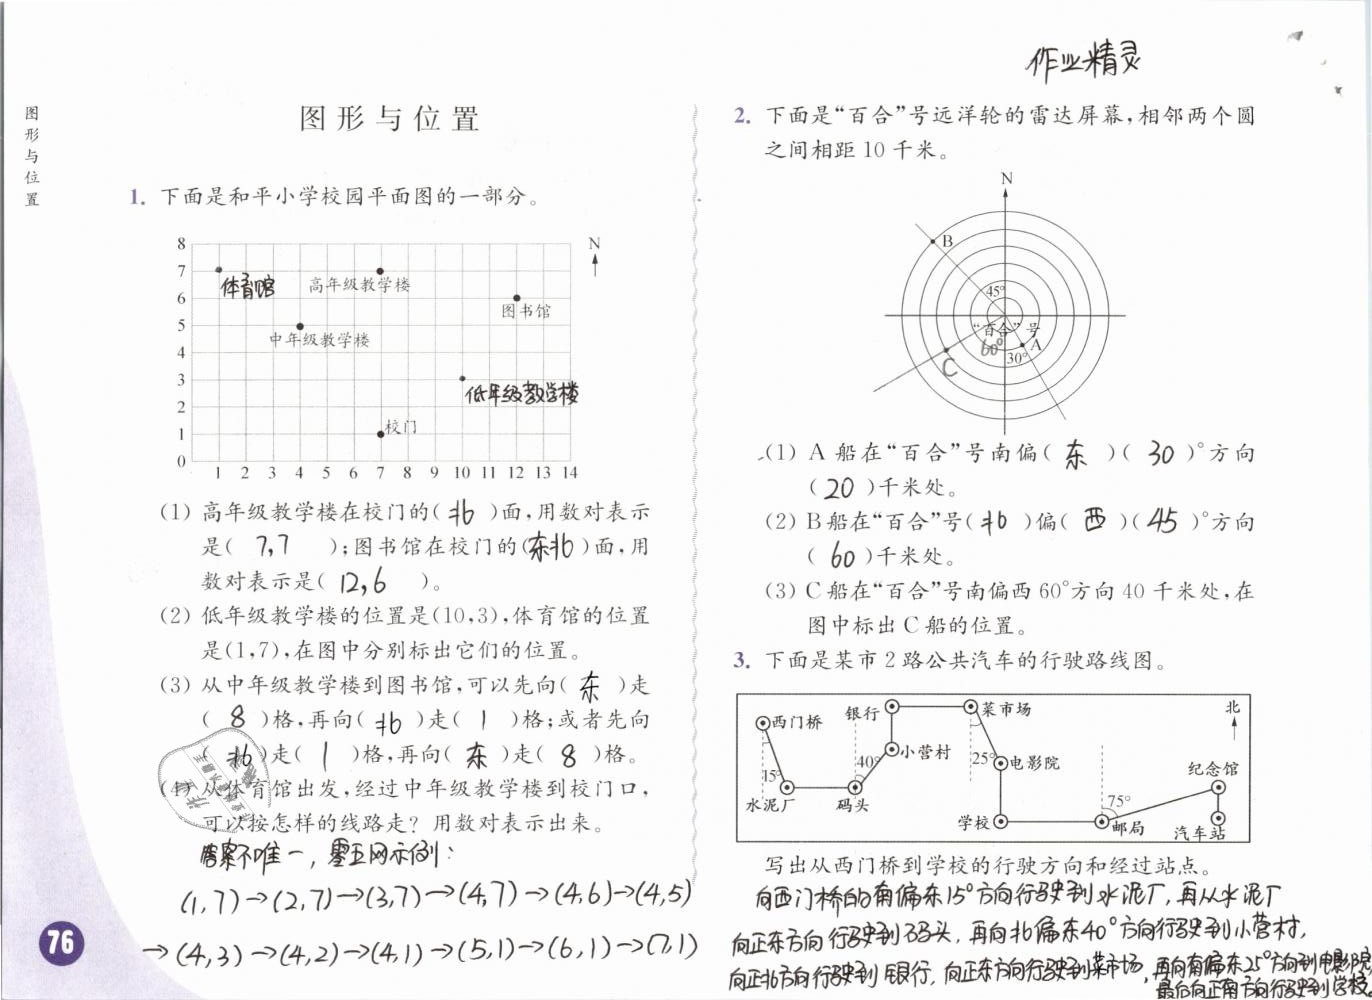 作业精灵
图形与位置
图形与位置
1. 下面是和平小学校园平面图的一部分。
8
7
6
5
4
3
2
1
0
1 2 3 4 5 6 7 8 9 10 11 12 13 14
N
体育馆
高年级教学楼
图书馆
中年级教学楼
低年级教学楼
校门
(1) 高年级教学楼在校门的(北)面,用数对表示
是( 7,7 );图书馆在校门的(东北)面,用
数对表示是( 12,6 )。
(2) 低年级教学楼的位置是(10,3),体育馆的位置
是(1,7),在图中分别标出它们的位置。
(3) 从中年级教学楼到图书馆,可以先向( 东 )走
( 8 )格,再向( 北 )走( 1 )格;或者先向
( 北 )走( 1 )格,再向( 东 )走( 8 )格。
(4) 从体育馆出发,经过中年级教学楼到校门口,
可以按怎样的线路走? 用数对表示出来。
答案不唯一,
示例:
(1,7)→(2,7)→(3,7)→(4,7)→(4,6)→(4,5)
→(4,3)→(4,2)→(4,1)→(5,1)→(6,1)→(7,1)
76
2. 下面是“百合”号远洋轮的雷达屏幕,相邻两个圆
之间相距 10 千米。
N
B
45°
“百合”号
60°
A
30°
C
(1) A 船在“百合”号南偏( 东 )( 30 )°方向
( 20 )千米处。
(2) B 船在“百合”号( 北 )偏( 西 )( 45 )°方向
( 60 )千米处。
(3) C 船在“百合”号南偏西 60°方向 40 千米处,在
图中标出 C 船的位置。
3. 下面是某市 2 路公共汽车的行驶路线图。
西门桥
银行
菜市场
北
小营村
15°
40°
25°
电影院
纪念馆
水泥厂
码头
75°
学校
邮局
汽车站
写出从西门桥到学校的行驶方向和经过站点。
向西门桥的南偏东15°方向行驶到水泥厂,再从水泥厂
向正东方向行驶到码头,再向北偏东40°方向行驶到小营村,
向正北方向行驶到银行,向正东方向行驶到菜市场,再向南偏东25°方向到电影院
最后向正南方向行驶到学校